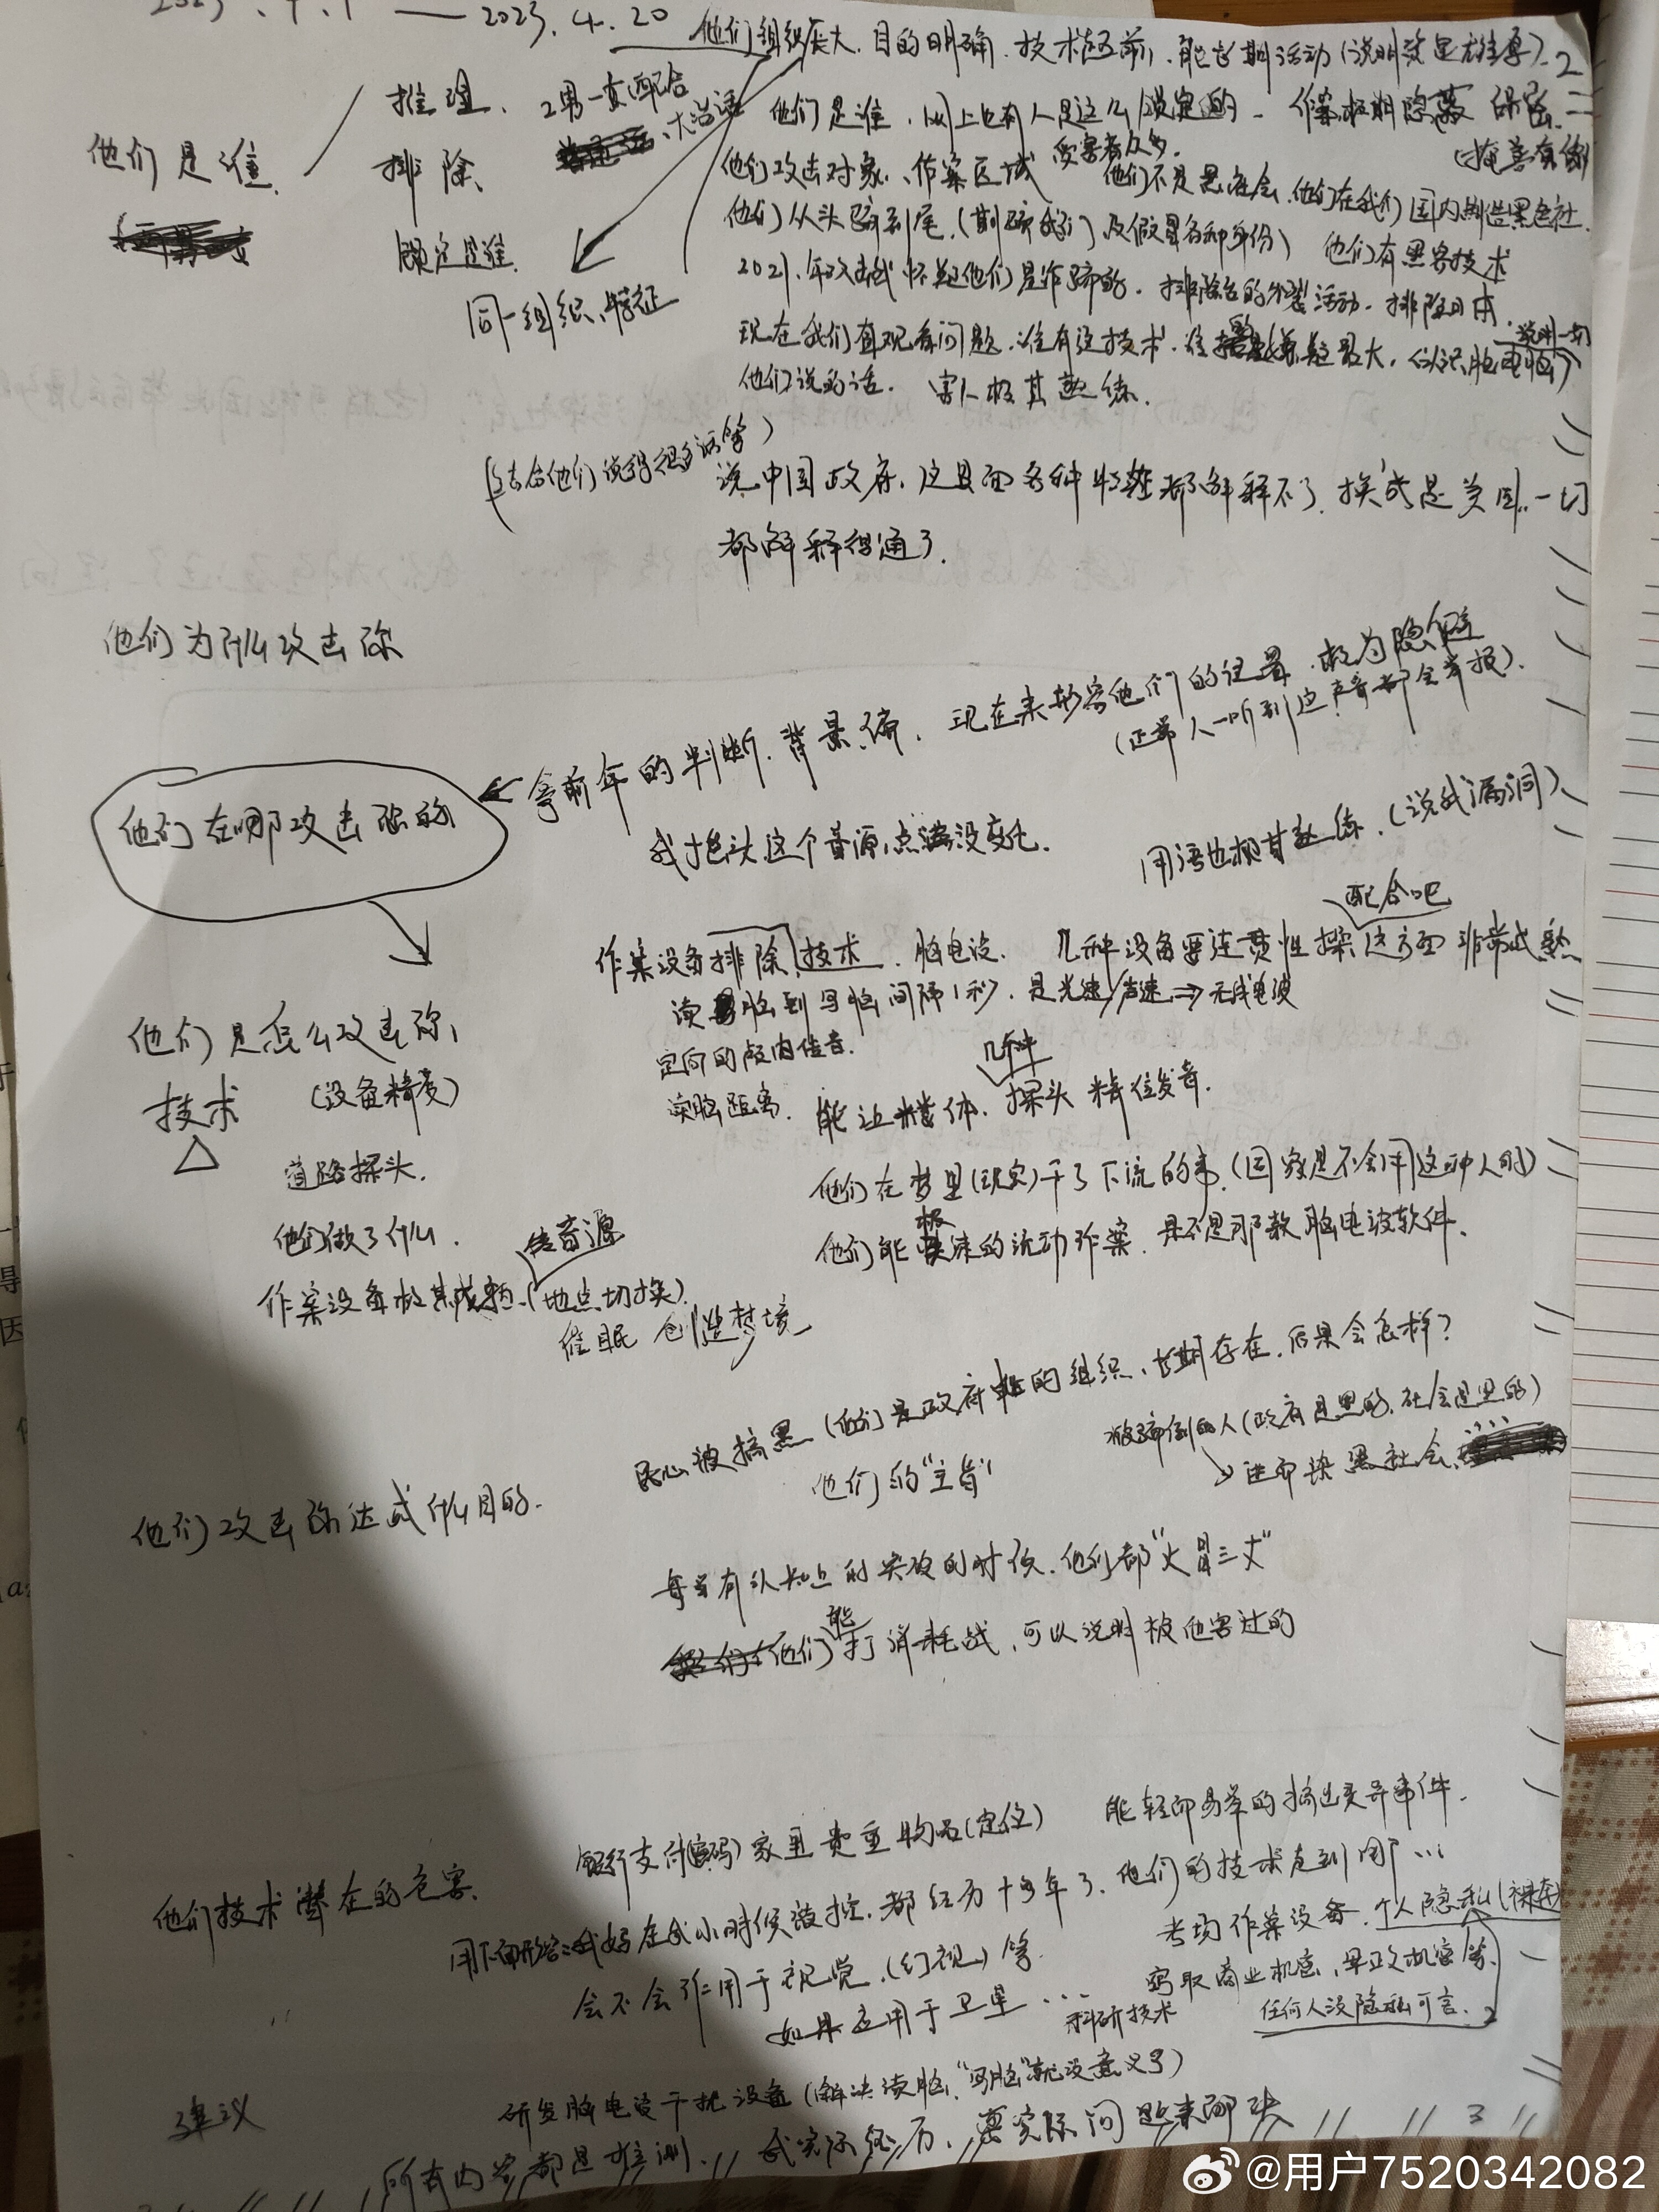 2023.4.1 — 2023.4.20
他们组织庞大、目的明确、技术超前、能长期活动(说明资金雄厚).2
他们是谁.
推理、
2男一女配合
大活话
排除、
锁定是谁.
同一组织、特征
他们是谁、网上也有人是这么锁定的 - 作案极期隐蔽
受害者众多.
他们攻击对象、作案区域
他们不是黑社会.他们在我们国内制造黑色社.
他们从头骗到尾.(期骗我们)及假冒各种身份) 他们有黑客技术
2021.年攻击我怀疑他们是诈骗的.排除台的分裂活动.排除日本.
现在我们直观看问题.谁有这技术.谁嫌疑最大.
说明一切
他们说的话. 害人极其熟练.
(结合他们说得很多话等)
说中国政府.这里面各种特征都解释不了.换成是美国..一切
都解释得通了.
他们为什么攻击你
他们在哪攻击你的
拿前年的判断.背景、偏.现在来形容他们的位置.极为隐僻
(正常人一听到这声音都会举报).
我抱头这个音源点没变化.
用语也极其熟练.(说我漏洞)
配合吧
作案设备排除、技术.脑电波. 几种设备要连贯性操这方面非常成熟
读脑到写脑间隔1秒.是光速/声速⇒无线电波
他们是怎么攻击你、
定向的颅内传音.
技术
(设备精度)
读脑距离.
几种
能让媒体、探头精位发音.
道路探头.
他们在梦里(现实)干了下流的事.(国家是不会用这种人的)
他们做了什么.
传音源
他们能极速的流动作案.是不是那款脑电波软件.
作案设备极其成熟.(地点切换)
催眠 创造梦境
民心被搞黑(他们是政府的组织、长期存在.后果会怎样?
被骗倒的人(政府是黑的.社会是黑的)
他们的"主旨"
↘进而染黑社会
他们攻击你达成什么目的.
每当有认知上的突破的时候.他们都"火冒三丈"
他们能打消耗战.可以说明被他害过的
银行支付(密码)家里贵重物品(定位)
能轻而易举的搞出灵异事件.
他们技术潜在的危害.
用下面形容:我妈在我小时候被控.都经历十多年了.他们的技术走到哪...
考场作案设备.个人隐私(裸奔)
会不会作用于视觉.(幻视)等.
窃取商业机密、军政机密等.
如果运用于卫星...
科研技术
任何人没隐私可言.
建议
研发脑电波干扰设备(解决读脑."写脑"就没意义了)
所有内容都是推测. 我实际经历.靠实际问题来解决
3
@用户7520342082